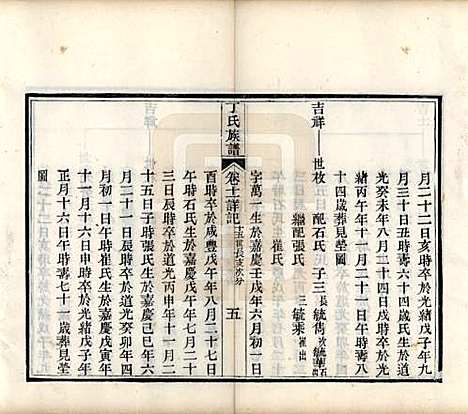 月二十二日亥時卒於光緒戊子年九
月三十日丑時壽六十四歲氏生於道
光癸未年八月二十四日戌時卒於光
緒丙午年十一月二十一日午時壽八
十四歲葬見塋圖
吉祥 世枚 配石氏 子三 長毓雋 次毓 石出
繼配張氏 三毓秉 崔出
崔氏
字萬一生於嘉慶壬戌年六月初一日
丁氏族譜 卷十詳記 五
酉時卒於咸豐戊午年八月二十七日
午時石氏生於嘉慶戊午年七月二十
三日辰時卒於道光丙申年十一月二
十五日子時張氏生於嘉慶己未年十
二月二十一日辰時卒於道光癸卯年四
月初一日午時崔氏生於嘉慶戊寅年
十一月十六日申時卒於光緒戊子年
正月十六日午時壽七十一歲葬見塋
圖
吉祥 世